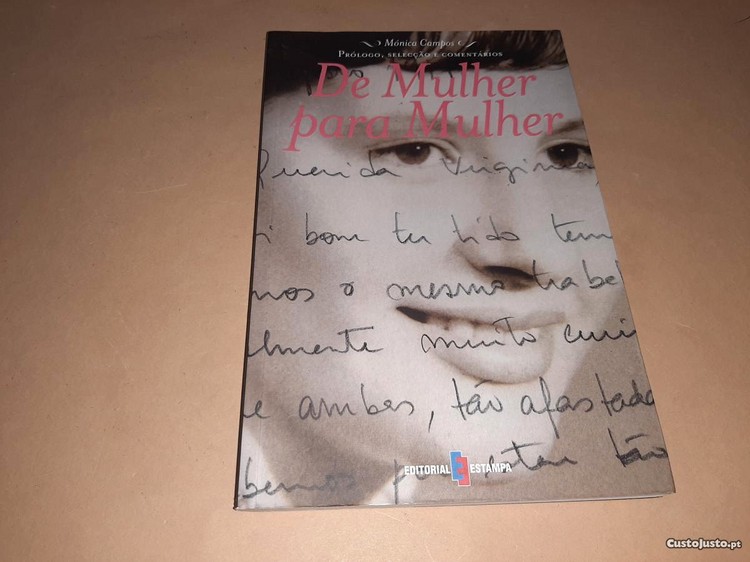 Mónica Campos
Prólogo, selecção e comentários
De Mulher
para Mulher
Querida Virginia,
i bom ter tido tem
mos o mesmo trabe
lmente muito curi
e ambas, tão afastada
bemos por tão
EDITORIAL ESTAMPA
CustoJusto.pt